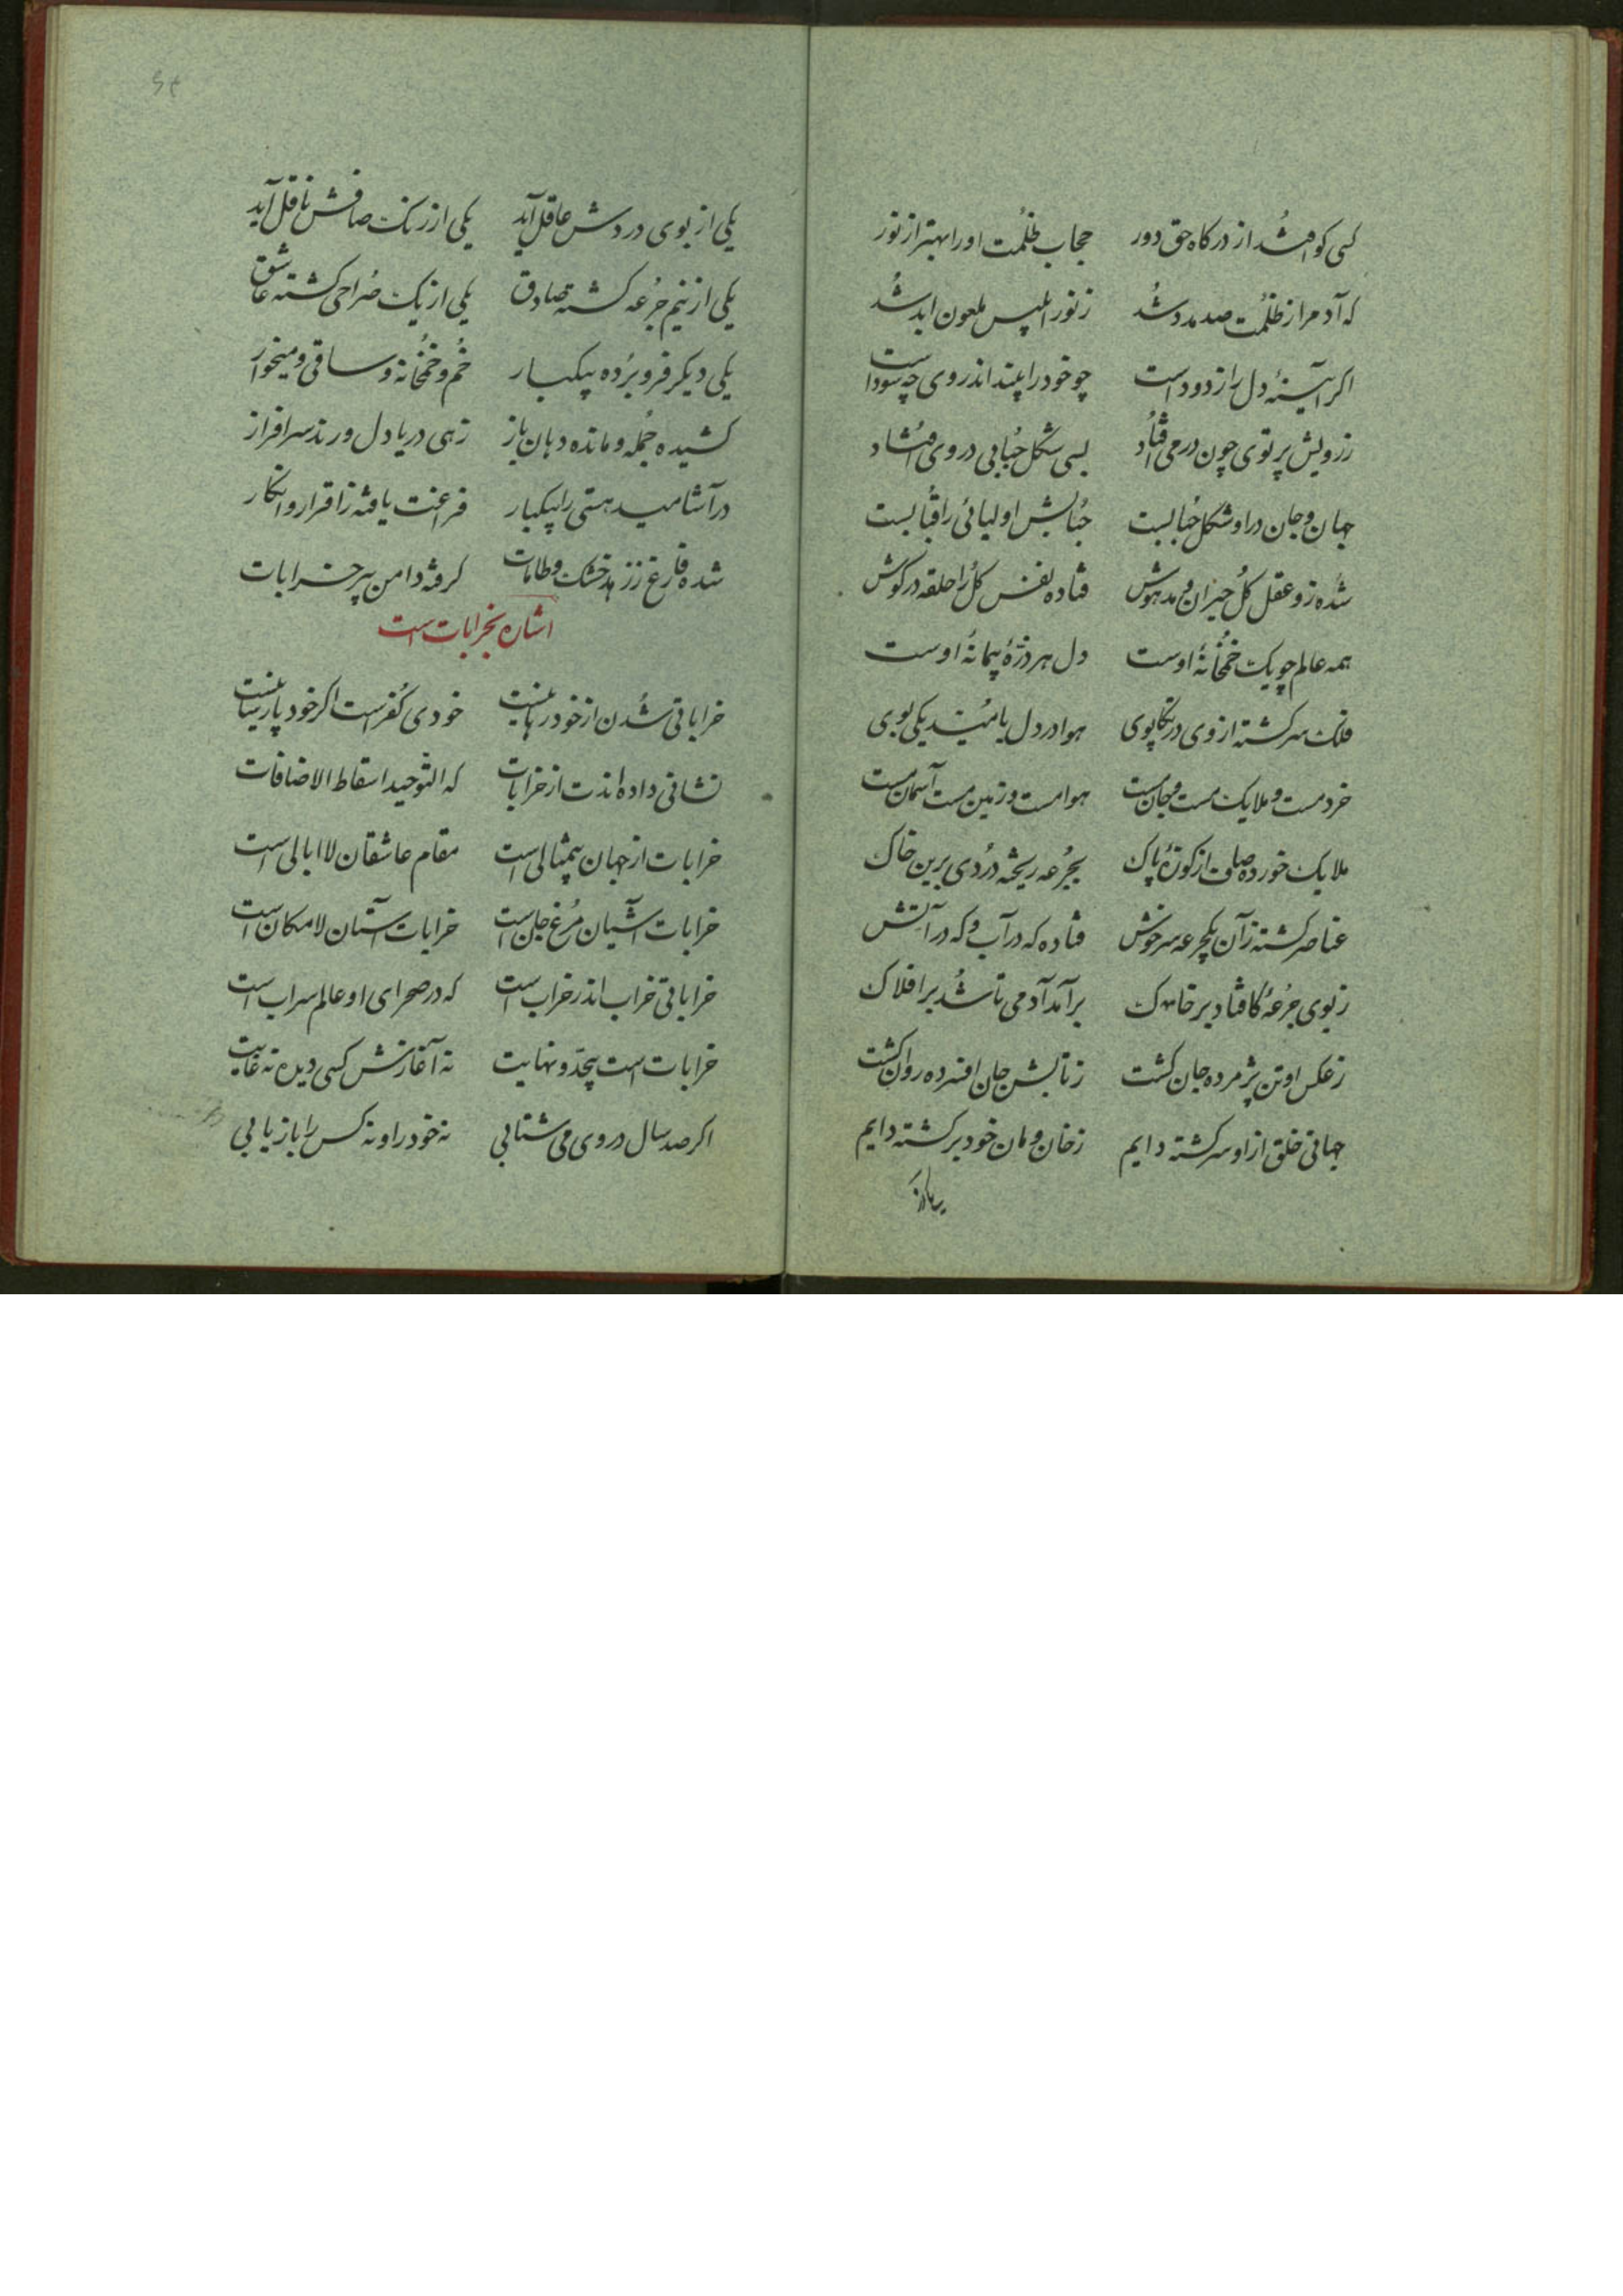 کسی کو افتد از درگاه حق دور حجاب ظُلمت او را بهتر از نور
که آدم را ز ظُلمت صد مدد شُد ز نور ابلیس ملعون ابد شُد
اکر آیینهٔ دل را زدوداست چو خود را بیند اندر وی چه سوداست
ز رویش پرتوی چون در می افتاد بسی شکل حُبابی در وی افتاد
جهان و جان در او شکل حُبابست حُبابش اولیائی را قُبابست
شُده زو عقل کُل حیران و مدهوش فتاده نفس کُل را حلقه در کوش
همه عالم چو یک خُمخانهٔ اوست دل هر ذرّهٔ پیمانهٔ اوست
فلک سرکشته از وی در تکاپوی هوا در دل بامّید یکی بوی
خرد مست و ملایک مست و جان مست هوا مست و زمین مست آسمان مست
ملایک خورده صاف از کوزهٔ پاک بجُرعه ریخته دُردی برین خاک
عناصر کشته زآن یکجرعه سرخوش فتاده که در آب و که در آتش
ز بوی جُرعهٔ کافتاد بر خاک برآمد آدمی تا شُد بر افلاک
ز عکس او تن پژمرده جان کشت ز تابش جان افسرده روان کشت
جهانی خلق از او سرکشته دایم ز خان و مان خود برکشته دایم
یکی از بوی دردش عاقل آید یکی از رنک صافش ناقل آید
یکی از نیم جُرعه کشته صادق یکی از یک صُراحی کشته عاشق
یکی دیکر فرو بُرده بیکبار خُم و خُمخانه و ساقی و میخوار
کشیده جُمله و مانده دهان باز زهی دریا دل و رند سرافراز
در آشامیده هستی را بیکبار فراغت یافته ز اقرار و انکار
شده فارغ ز زهد خشک و طامات کرفته دامن پیر خرابات
اشاره بخرابات است
خراباتی شُدن از خود رهاییست خودی کُفر است اکر خود پارساییست
نشانی داده اندت از خرابات که التّوحید اسقاط الاضافات
خرابات از جهان بیمثالی است مقام عاشقان لاابالی است
خرابات آشیان مُرغ جان است خرابات آستان لامکان است
خراباتی خراب اندر خراب است که در صحرای او عالم سراب است
خرابات است بیحدّ و نهایت نه آغازش کسی دیده نه غایت
اکر صد سال در وی می شتابی نه خود را و نه کس را بازیابی